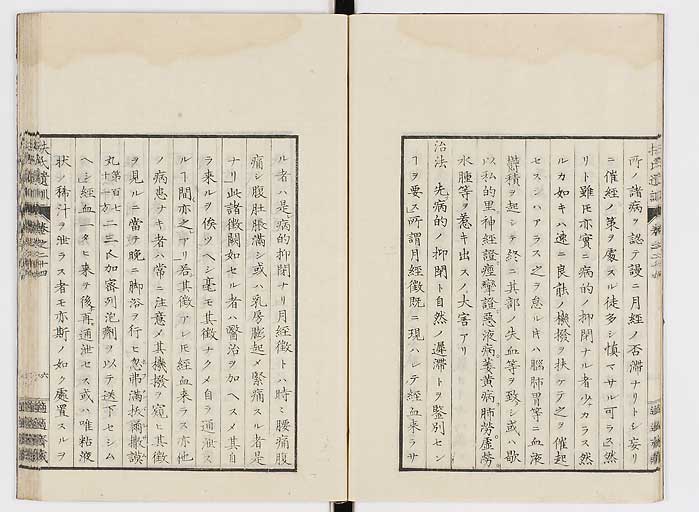 所ノ諸病ヲ認テ謾ニ月經ノ否滞ナリトシ妄リ
ニ催經ノ策ヲ處スル徒多シ慎マサル可ラス然
リト雖モ亦實ニ病的ノ抑閉ナル者少カラス然
ルカ如キハ速ニ良能ノ機撥ヲ扶ケテ之ヲ催起
セスンハアラス之ヲ怠ル片ハ腦肺胃等ニ血液
鬱積ヲ起シテ終ニ其部ノ失血等ヲ致シ或ハ歇
以私的里神經證痙攣證惡液病萎黄病肺癆虚勞
水腫等ヲ惹キ出スノ大害アリ
治法 先病的ノ抑閉ト自然ノ遲滞トヲ鑒別セン
ヿヲ要ス所謂月經徴既ニ現ハレテ經血來ラサ
ル者ハ是病的抑閉ナリ月經徴トハ時ミ腰痛腹
痛シ腹肚脹滿シ或ハ乳房膨起メ緊痛スル者是
ナリ此諸徴闕如セル者ハ醫治ヲ加ヘスメ其自
ラ來ルヲ俟ツヘシ毫モ其徴ナクメ自ラ通泄ス
ルヿ間亦之アリ若其徴アレ𪜈經血來ラス亦他
ノ病患ナキ者ハ常ニ注意メ其機撥ヲ窺ヒ其徴
ヲ見ルニ當テ晩ニ脚浴ヲ行ヒ忽弗滿扶爾撒謨
丸第百七十一方二三氏加密列泡劑ヲ以テ送下セシム
ヘシ經血一タヒ來ヲ後再通泄セス或ハ唯粘液
状ノ稀汁ヲ泄ラス者モ亦斯ノ如ク處置スルヲ
扶氏遺訓 卷之二十四 六